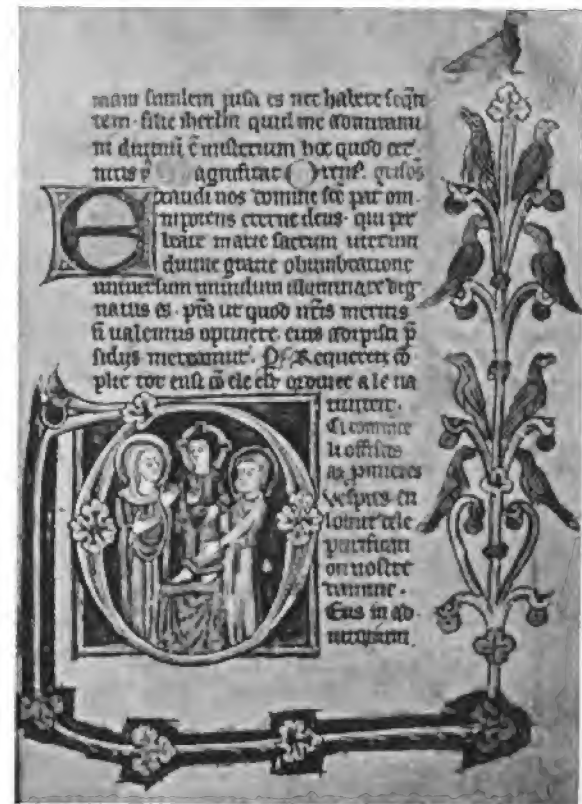 mam similem uisa es nec habere sequen
tem. filie iherlm quid me admirami
ni diuinū ē misterium hoc quod cer
nitis
agnificat
E xaudi nos domine sce pat om
nipotens eterne deus. qui per
beate marie sacrum uterum
diuine gratie obumbratione
uniuersum mundum illuminare dig
natus es. ut quod nris meritis
n ualemus optinere. eius adipisci p
sidijs mereamur. Requeren
plie tot ensi cele est a le na
tiuitet.
Ci comince
li offises
as pmieres
uespres en
lonur dele
purificati
on nostre
damme.
Eus in ad
iutorium